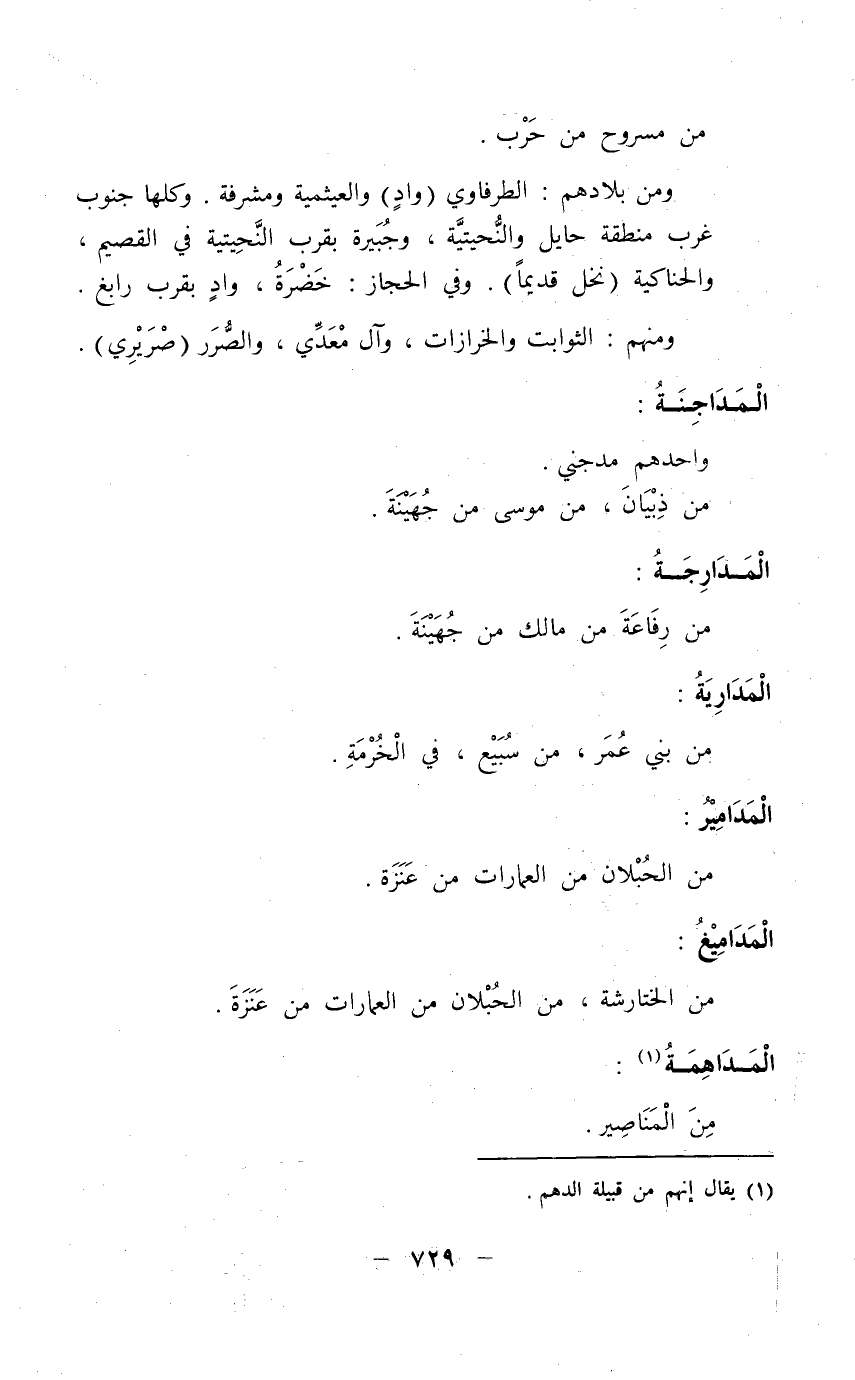 من مسروح من حَرْب .
ومن بلادهم : الطرفاوي (وادٍ) والعيثمية ومشرفة . وكلها جنوب
غرب منطقة حايل والنُّحيتيَّة ، وجُبَيرة بقرب النَّحِيتية في القصيم ،
والحناكية (نخل قديماً) . وفي الحجاز : خَضْرَةُ ، وادٍ بقرب رابغ .
ومنهم : الثوابت والخرازات ، وآل مْعَدِّي ، والصُّرَر (صْرَيْرِي) .
الْمَدَاجِنَةُ :
واحدهم مدجني .
من ذِبْيَانَ ، من موسى من جُهَيْنَةَ .
الْمَدَارِجَةُ :
من رِفَاعَةَ من مالك من جُهَيْنَةَ .
الْمَدَارِيَةُ :
من بني عُمَر ، من سُبَيْع ، في الْخُرْمَةِ .
الْمَدَامِيْرُ :
من الحُبْلان من العمارات من عَنَزَة .
الْمَدَامِيْغُ :
من الختارشة ، من الحُبْلان من العمارات من عَنَزَةَ .
الْمَدَاهِمَةُ (١) :
مِنَ الْمَنَاصِير .
(١) يقال إنهم من قبيلة الدهم .
— ٧٢٩ —